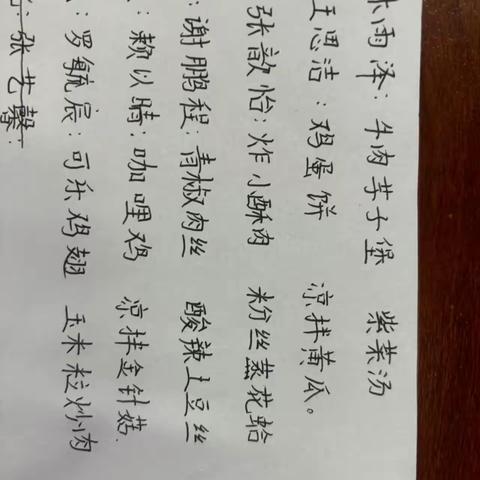 雨泽：牛肉芋子煲 紫菜汤
王思洁：鸡蛋饼 凉拌黄瓜。
张歆怡：炸小酥肉 粉丝蒸花蛤
：谢鹏程：青椒肉丝 酸辣土豆丝
：赖以晴：咖哩鸡 凉拌金针菇.
：罗毓辰：可乐鸡翅 玉米粒炒肉
张艺馨：